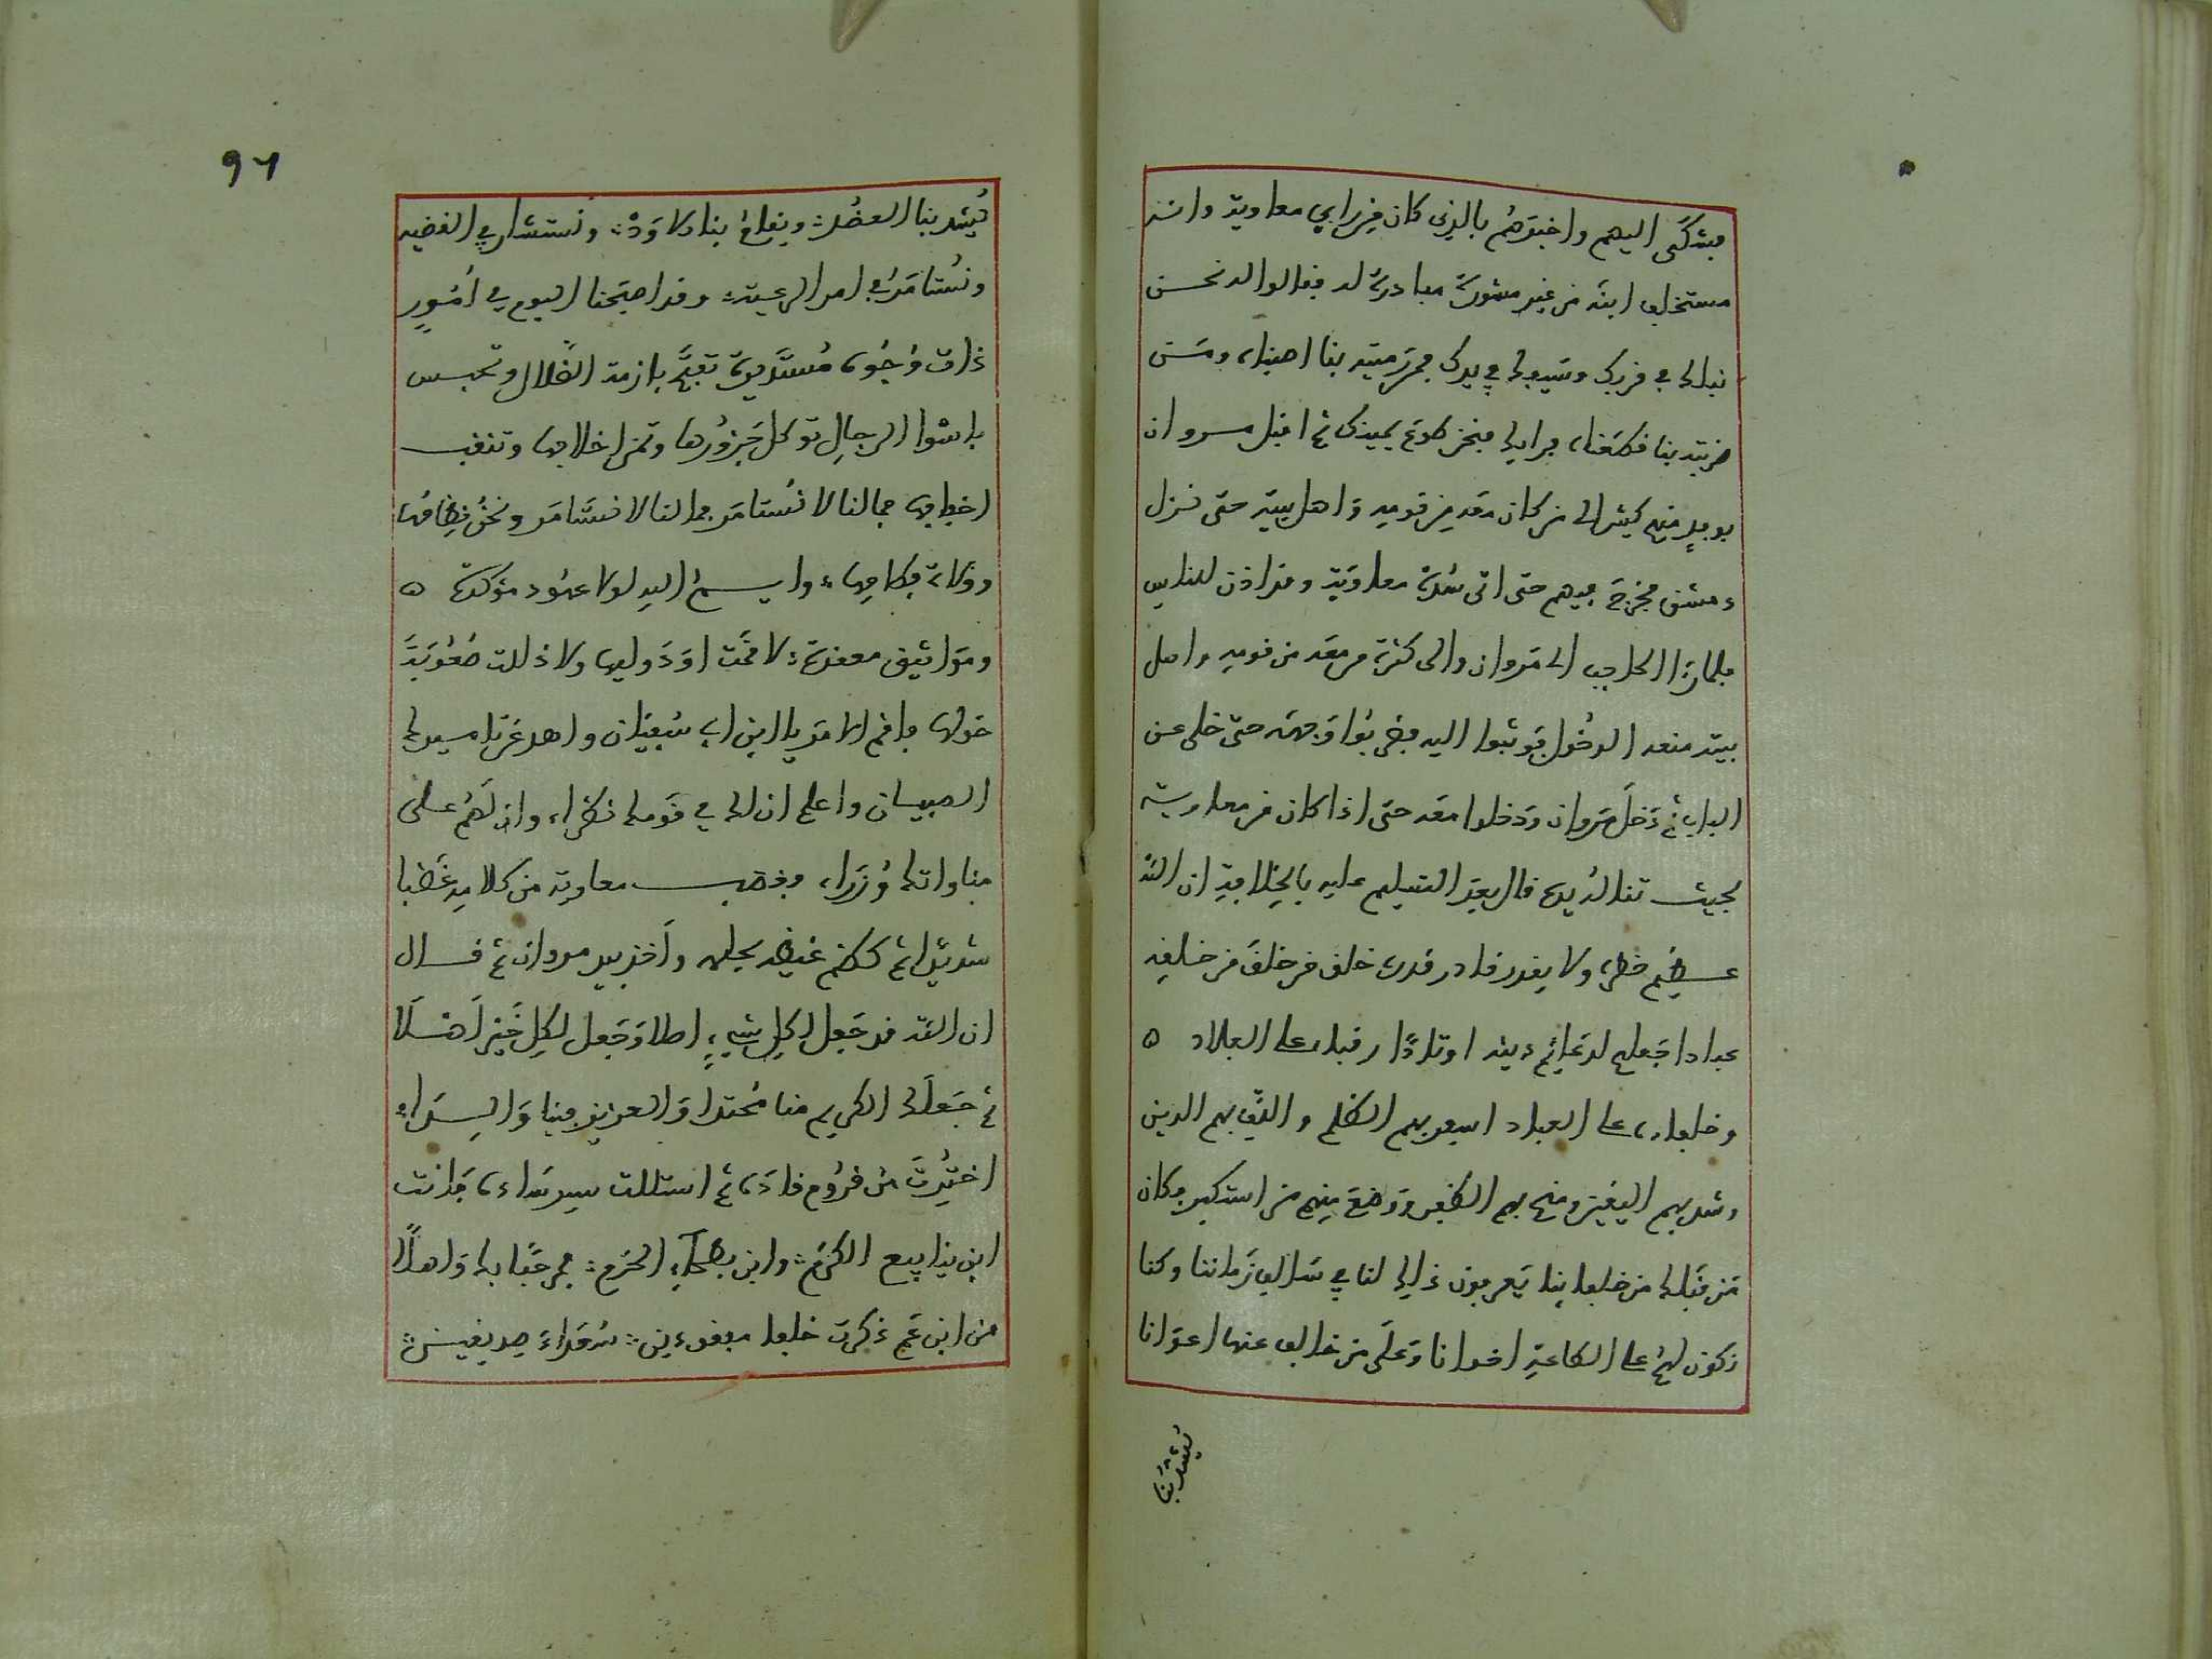 فشكى اليهم واخبرهم بالذى كان من رأي معاوية وانه
مستخلف ابنه من غير مشورة مبادرة له فقالوا له نحن
نبلك في قربك وسيفك في يدك فمن رميته بنا اصبناه ومن
ضربته بنا قطعناه فرايك فنحن طوع يمينك ثم اقبل مروان
بوفد منهم كثير الى من كان معه من قومه واهل بيته حتى نزل
دمشق فخرج فيهم حتى اتى سدة معاوية وقد اذن للناس
فلما نظر الحاجب الى مروان والى كثرة من معه من قومه واهل
بيته منعه الدخول فوثبوا اليه فضربوا وجهه حتى خلى عن
الباب ثم دخل مروان ودخلوا معه حتى اذا كان من معاوية
بحيث تناله يده قال بعد التسليم عليه بالخلافة ان الله
عظيم خطره ولا يقدر قادر قدره خلق من خلق من خلقه
عبادا جعلهم لدعائم دينه اوتادا رقباه على البلاد ه
وخلفاءه على العباد اسفر بهم الظلم والف بهم الدين
وشد بهم اليقين ومنح بهم الظفر ووضع بهم من استكبر فكان
من قبلك من خلفائنا يعرفون ذلك لنا في سالف زماننا وكنا
نكون لهم على الطاعة اخوانا وعلى من خالف عنها اعوانا
يشد بنا
٩٦
يشد بنا العضد ويقام بنا الاود ونستشار في القضيه
ونستامر في امر الرعية وقد اصبحنا اليوم في امور
ذات وجوه مستديرة تفتح بازمة الضلال وتجلس
باسوا الرجال توكل جزورها وتمز اخلافها وتنقب
اخفافها فمالنا لا نستامر فمالنا لا نستامر ونحن نظامها
وولاة فطامها وايم الله لولا عهود مؤكدة ه
ومواثيق معقدة لاقمت اود وليها ولا ذللت صعوبة
حولها فاقم الامر يا ابن ابي سفيان واهد من تاميرك
الصبيان واعلم ان لك في قومك نظراء وان لهم على
مناواتك وزراء فغضب معاوية من كلامه غضبا
شديدا ثم كظم غيظه بحلمه واخذ بيد مروان ثم قال
ان الله قد جعل لكل شيء اصلا وجعل لكل خير اهلا
ثم جعلك الكريم منا محتدا والعزيز منا والدا
اخترت من قروم قادة ثم استللت سيد سادة فانت
ابن ينابيع الكرم وابن بطحاء الحرم فمرحبا بك واهلا
من ابن عم ذكرت خلفا مفقودين شهداء صديقين